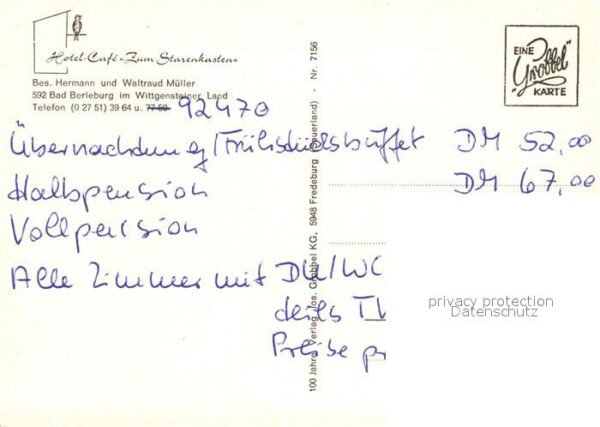 Hotel-Café »Zum Starenkasten«
Bes. Hermann und Waltraud Müller
592 Bad Berleburg im Wittgensteiner Land
Telefon (0 27 51) 39 64 u. 77 50 92470
Übernachtung/Frühstücksbuffet DM 52,00
Halbpension DM 67,00
Vollpension
Alle Zimmer mit DU/WC
teils TV
Preise p
100 Jahre Verlag Jos. Grobbel KG, 5948 Fredeburg (Sauerland) - Nr. 7156
EINE
"Grobbel"
KARTE
privacy protection
Datenschutz